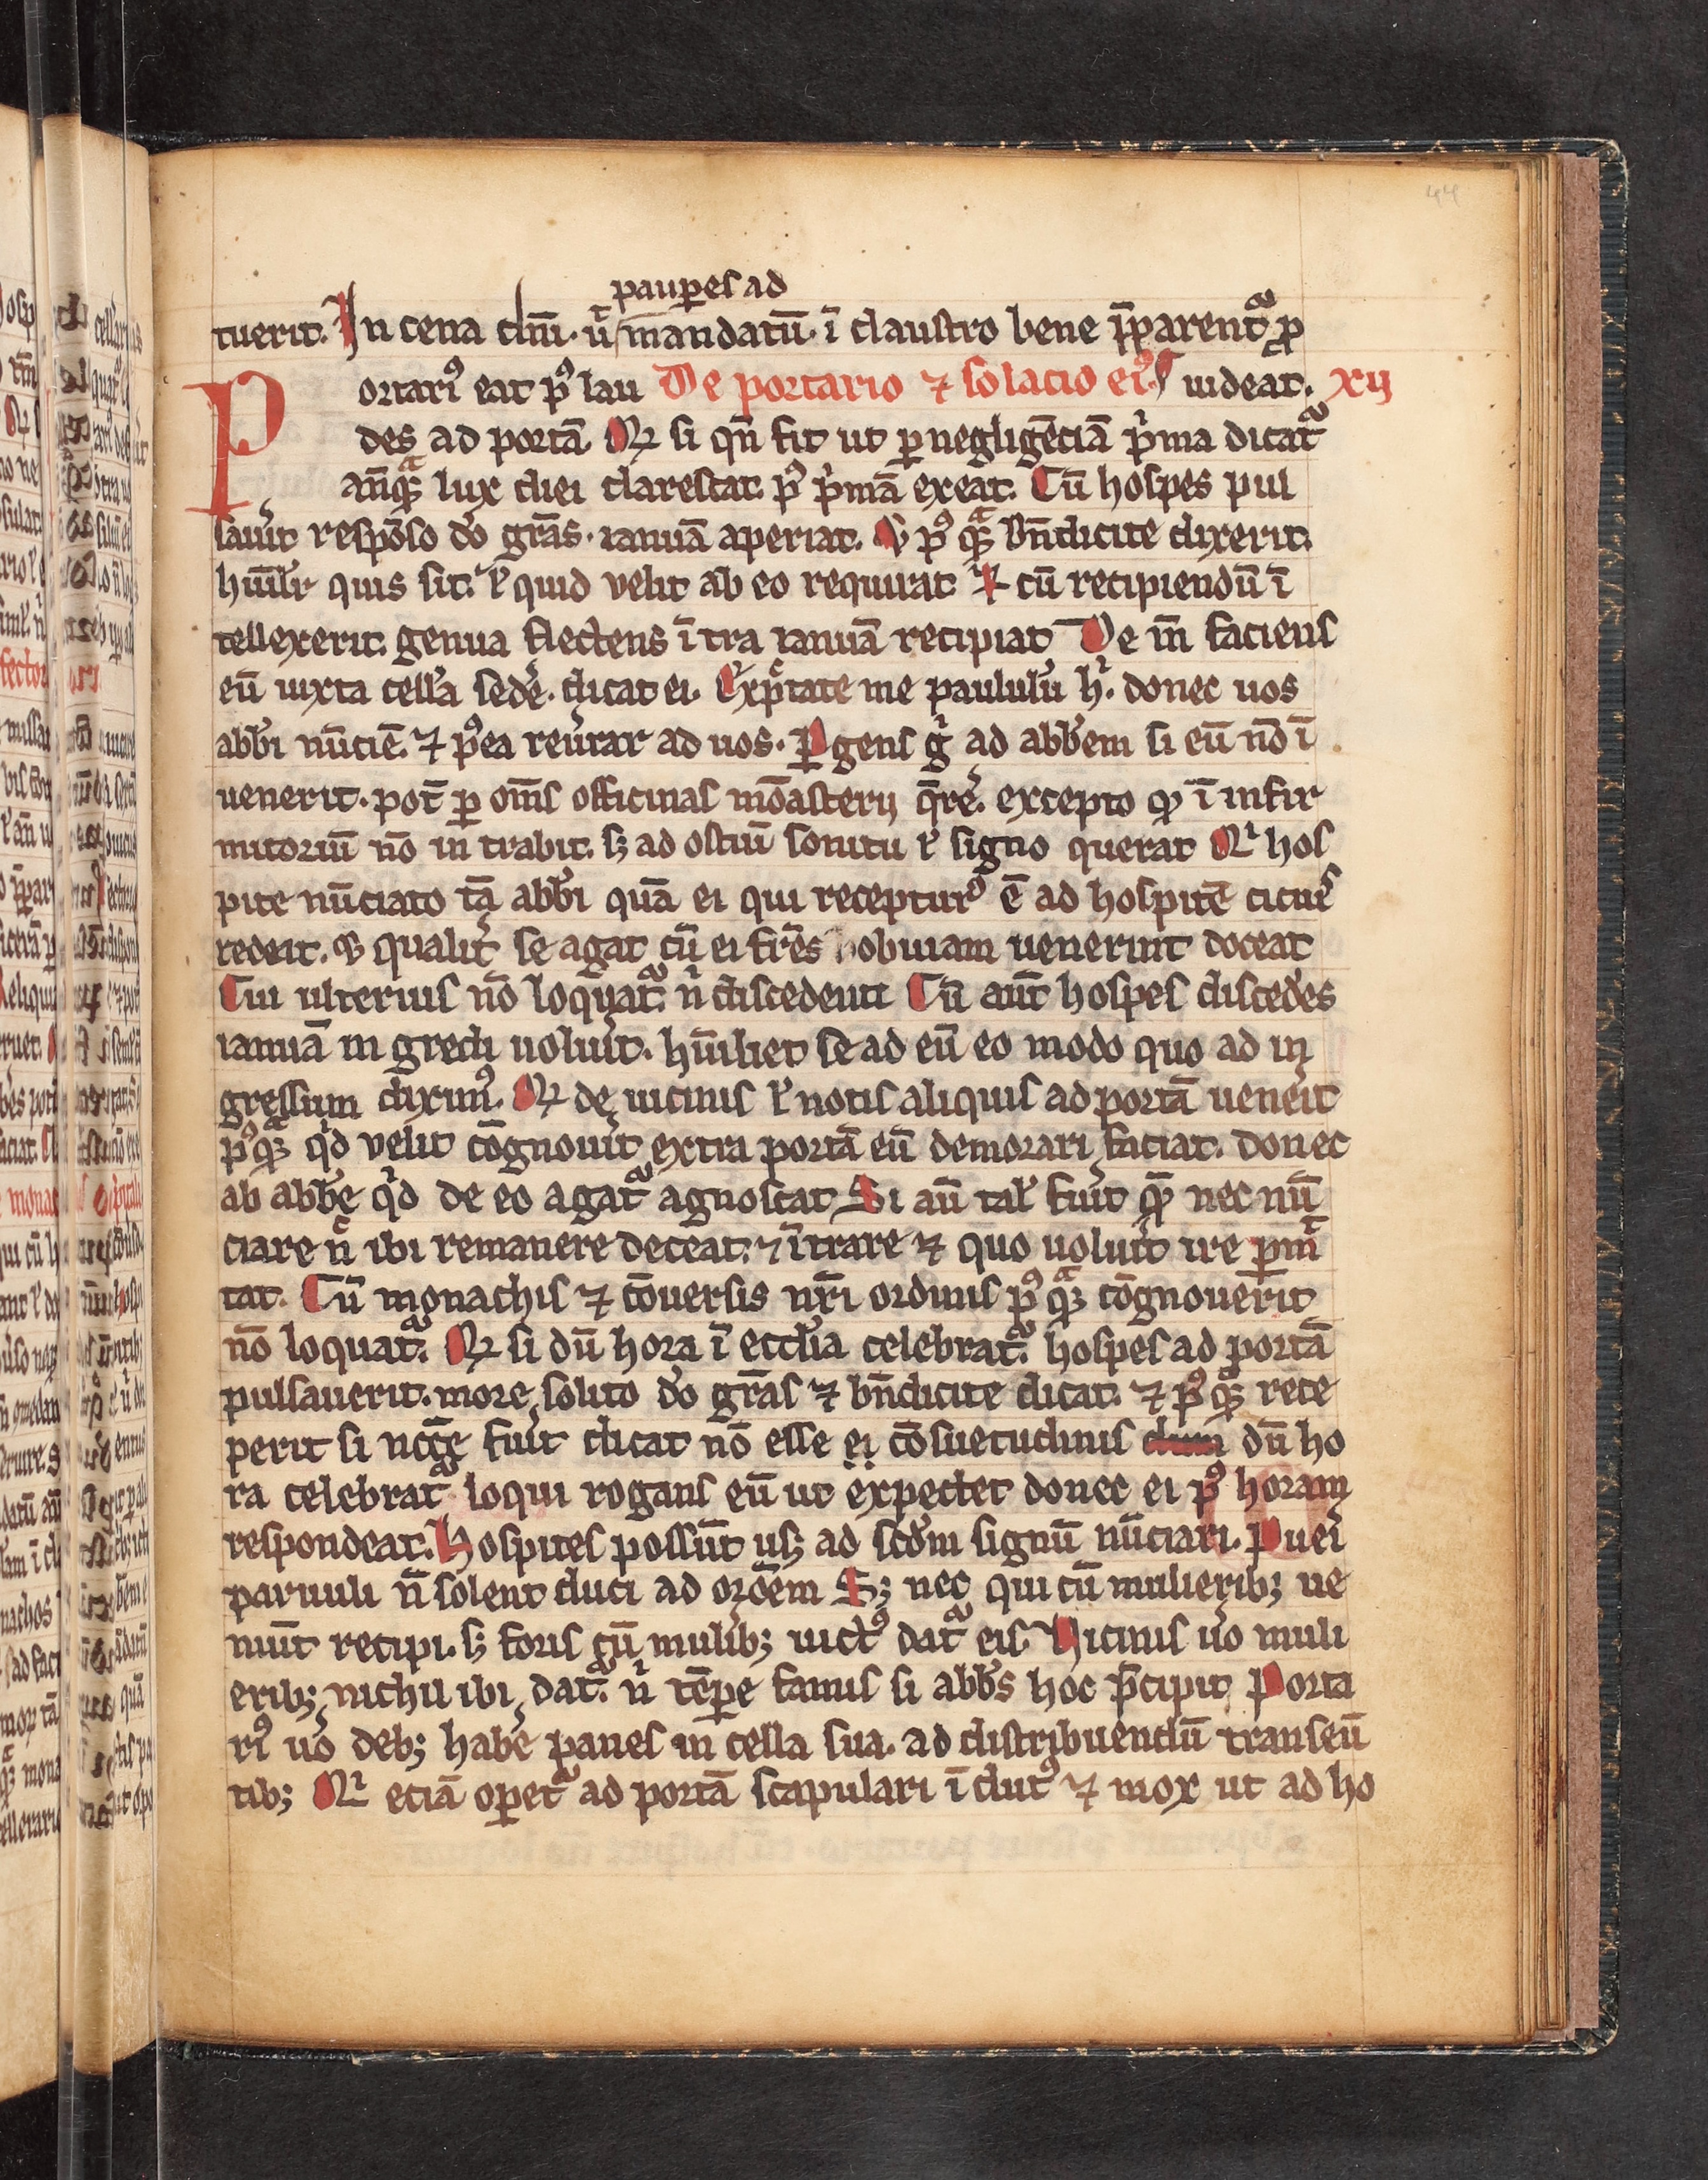 44
paup̱es ad
tuerit. In cena dnī. ut mandatū. ī claustro bene p̄parentr̄ p̄
ortari9 eat p9 lau De portario ⁊ solacio ei9 uideat. xij
P des ad portā. Qꝛ si qn̄ fit ut ꝑ negligēciā pͥma dicatr̄
an̄qᷓꝫ lux diei clarescat. p9 pͥmā exeat. Cū hospes pul
sau͛it respōso do gr̄as. ianuā aperiat. ⁊ p9 qᷓꝫ bn̄dicite dixerit.
hūilr̄ quis sit. ł quid velit ab eo requirat Et cū recipiendū ī
tellexerit. genua flectens ītra ianuā recipiat De in̄ faciens
eū iuxta cellā sede͛. dicat ei. Exp̄ctate me paululū hͥ. donec uos
abb̄i nūciē. ⁊ p9ea reu͛tar ad uos. Ꝑgens gͥ ad abb̄em si eū nō ī
uenerit. pot̄ ꝑ om̄s officinas mōasterij q̄re͛. excepto qͩ ī infir
mitoriū nō in trabit. sꝫ ad ostiū sonitu ł signo querat Qͥ hos
pite nūciato tā abb̄i quā ei qui receptur9 ē ad hospitē citius
redeat. ⁊ qualit͛ se agat cū ei fr̄es obuiam uenerint doceat
Cui ulterius nō loquatr̄. nͥ discedenti Cū aut̄ hospes discedēs
ianuā in gredi uolu͛it. hūiliet se ad eū eo modo quo ad in
gressum dixim9. Qꝛ de uicinis ł notis aliquis ad portā uen͛it
p9qᷓꝫ qͥd velit cōgnou͛it extra portā eū demorari faciat. donec
ab abb̄e qͥd de eo agatr̄ agnoscat Si aut̄ tal͛ fu͛it qͩ nec nū
ciare nͨ ibi remanere deceat. ⁊ ītrare ⁊ quo uolu͛it ire ꝑmͭ
tat. Cū monachis ⁊ cōuersis nr̄i ordinis p9 qᷓꝫ cōgnouerit
nō loquatr̄. Qꝛ si dū hora ī eccl̄ia celebratr̄. hospes ad portā
pulsauerit. more solito do gr̄as ⁊ bn̄dicite dicat. ⁊ p9 qᷓꝫ rece
perit si ncc̄e fu͛it dicat nō esse ei cōsuetudinis dum dū ho
ra celebratr̄ loqui rogans eū ut expectet donec ei p9 horam
respondeat. Hospites possūt usꝫ ad scdm signū nūciari. Pueri
paruuli n̄ solent duci ad ordēm Sꝫ nec qui cū mulieribꝫ ue
niūt recipi. sꝫ foris cū mulibꝫ uict9 datr̄ eis. Uicinis uo muli
eribꝫ nichil ibi datr̄. nͥ tēpe famis si abb̄s hoc p̄cipit Porta
ri9 uo debꝫ habe͛ panes in cella sua. ad distribuendū transeū
tibꝫ Qͥ eciā operetr̄ ad portā scapulari īdut9 ⁊ mox ut ad ho